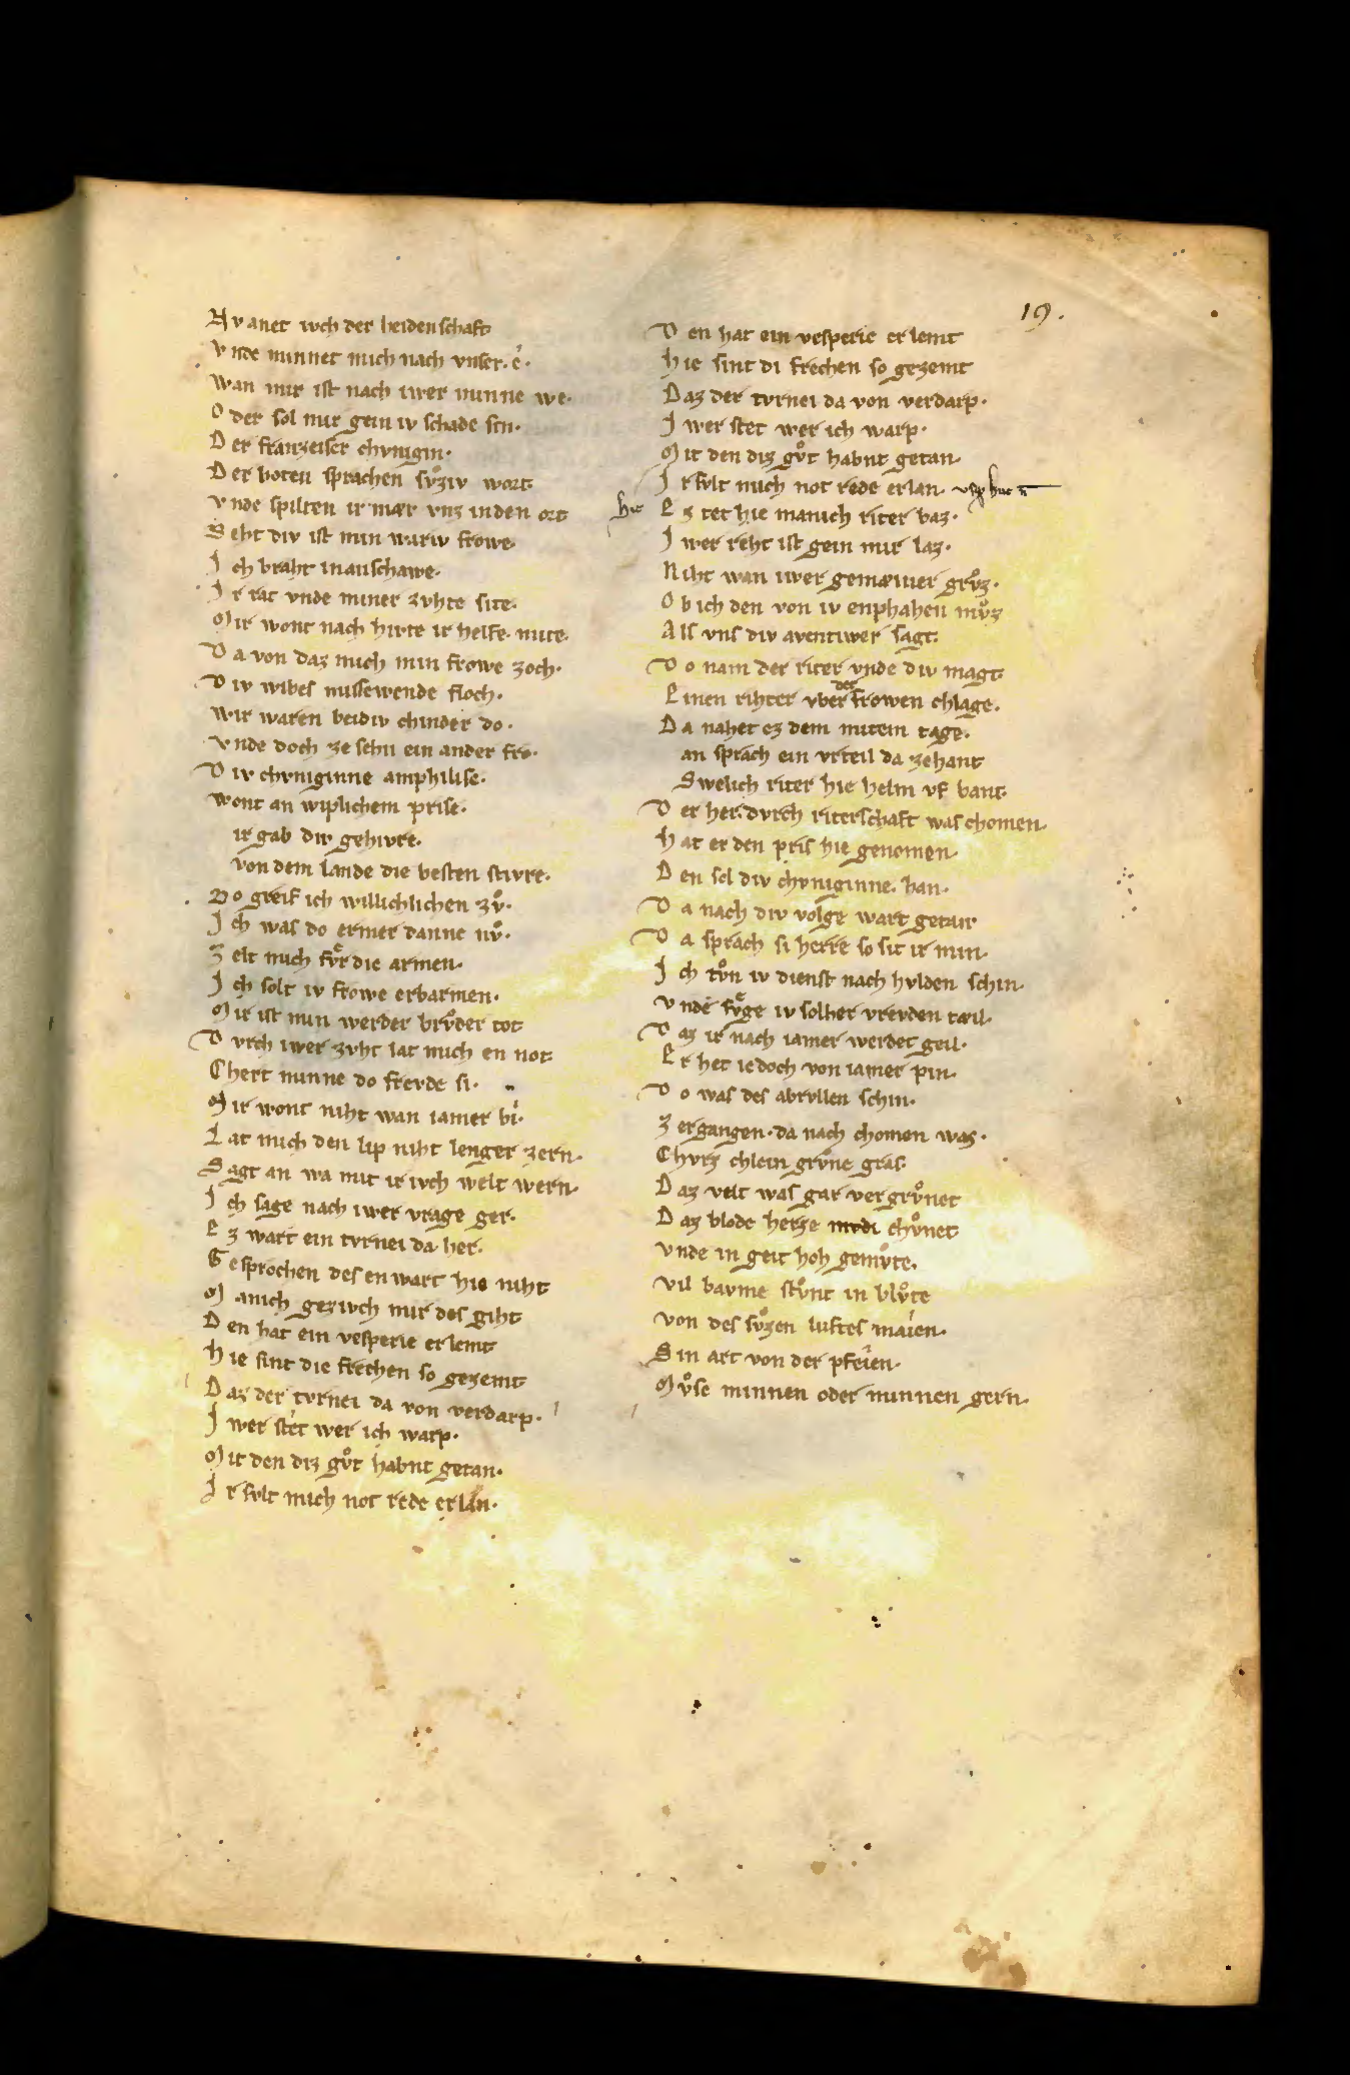 19.
Nv anet iwch der heidenschaft
Vnde minnet mich nach vnser. e.
Wan mir ist nach iwer minne we.
Oder sol mir gein iv schade sin.
Der franzeiser chvnigin.
Der boten sprachen svͦziv wort
Vnde spilten ir mær vnz inden ort
Seht div ist min wariv frowe.
Ich braht inanschawe.
Ir rat vnde miner zvhte site.
Mir wont nach hivte ir helfe. mite.
Da von daz mich min frowe zoch.
Div wibes missewende floch.
Wir waren beidiv chinder do.
Vnde doch ze sehn ein ander fro.
Div chvniginne amphilise.
Wont an wiplichem prise.
ir gab div gehivre.
von dem lande die besten stivre.
Do greif ich willichlichen zvͦ.
Ich was do ermer danne nvͦ.
Zelt mich fvͤr die armen.
Ich solt iv frowe erbarmen.
Mir ist min werder brvͦder tot
Dvrch iwer zvht lat mich en not
Chert minne do frevde si.
Mir wont niht wan iamer bi.
Lat mich den lip niht lenger zern.
Sagt an wa mit ir iwch welt wern.
Ich sage nach iwer vrage ger.
Ez wart ein tvrnei da her.
Gesprochen des en wart hie niht
Manich geziwch mir des giht
Den hat ein vesperie erlemt
Hie sint die frechen so gezemt
Daz der tvrnei da von verdarp.
Iwer stet wer ich warp.
Mit den diz gvͦt habnt getan.
Ir svlt mich not rede erlan.
Den hat ein vesperie erlemt
Hie sint di frechen so gezemt
Daz der tvrnei da von verdarp.
Iwer stet wer ich warp.
Mit den diz gvͦt habnt getan.
Ir svlt mich not rede erlan.
hie Ez tet hie manich riter baz.
Iwer reht ist gein mir laz.
Niht wan iwer gemæiner grvͦz.
Ob ich den von iv enphahen mvͦz
Als vns div aventiwer sagt.
Do nam der riter vnde div magt.
Einen rihter vber der frowen chlage.
Da nahet ez dem mitem tage.
an sprach ein vrteil da zehant
Swelich riter hie helm vf bant.
Der her. dvrch riterschaft was chomen.
Hat er den pris hie genomen.
Den sol div chvniginne. han.
Da nach div volge wart getan
Da sprach si herre so sit ir min.
Ich tvͦn iv dienst nach hvlden schin.
Vnde fvͤge iv solher vrevden tæil.
Daz ir nach iamer werdet geil.
Er het iedoch von iamer pin.
Do was des abryllen schin.
Zergangen. da nach chomen was.
Chvrz chlein grvͦne gras.
Daz velt was gar vergrvͦnet
Daz blode herze chvͦnet
Vnde in geit hoh gemvͦte.
Vil bavme stvͦnt in blvͦte
Von des svͦzen luftes maien.
Sin art von der pfeien.
Mvͦse minnen oder minnen gern.